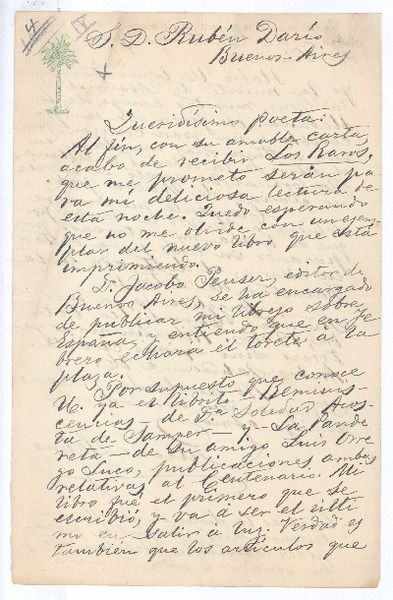 S. D. Rubén Darío
Buenos-Aires
Queridísimo poeta:
Al fin, con su amable carta,
acabo de recibir Los Raros,
que me prometo serán pa
ra mi deliciosa lectura de
esta noche. Quedo esperando
que no me olvide con un ejem
plar del nuevo libro que está
imprimiendo.
D. Jacobo Peuser, editor de
Buenos Aires, se ha encargado
de publicar mi librejo sobre
España, y entiendo que en Fe
brero echará el torete a la
plaza.
Por supuesto que conoce
U. ya el librito Reminis-
cencias - de Da. Soledad Acos
ta de Samper - y - La Pande
reta - de su amigo Luis Orre
go Luco, publicaciones ambas
relativas al Centenario. Mi
libro fué el primero que se
escribió, y va á ser el últi
mo en salir á luz. Verdad es
también que los artículos que